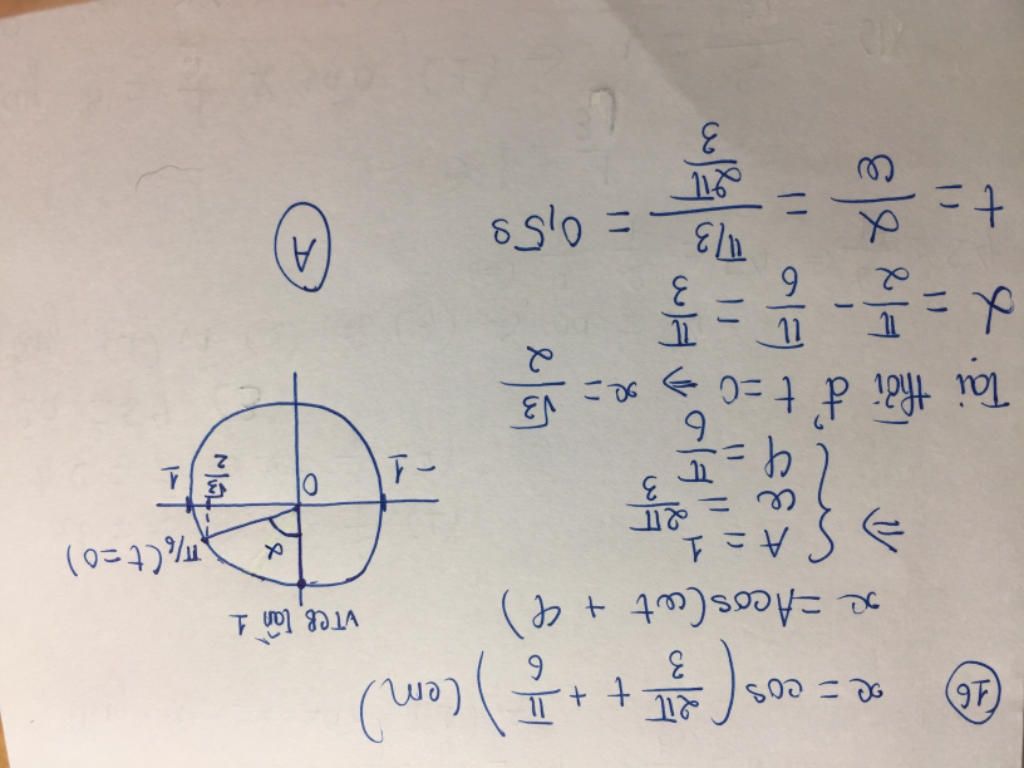 16 x = cos(2π/3 t + π/6) (cm)
x = Acos(ωt + φ)
⇒ { A = 1
ω = 2π/3
φ = π/6
Tại thời đ' t = 0 ⇒ x = √3/2
α = π/2 - π/6 = π/3
t = α/ω = π/3 / 2π/3 = 0,5s
VTCB lần 1
α
π/6 (t=0)
-1
O
√3/2
1
A